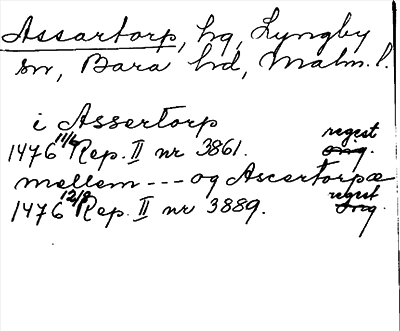 Assartorp, hg, Lyngby
sn, Bara hd, Malm. l.
i Assertorp
1476 11/4 Rep. II nr 3861. regest
mellem --- og Ascertorpæ
1476 12/8 Rep. II nr 3889. regest